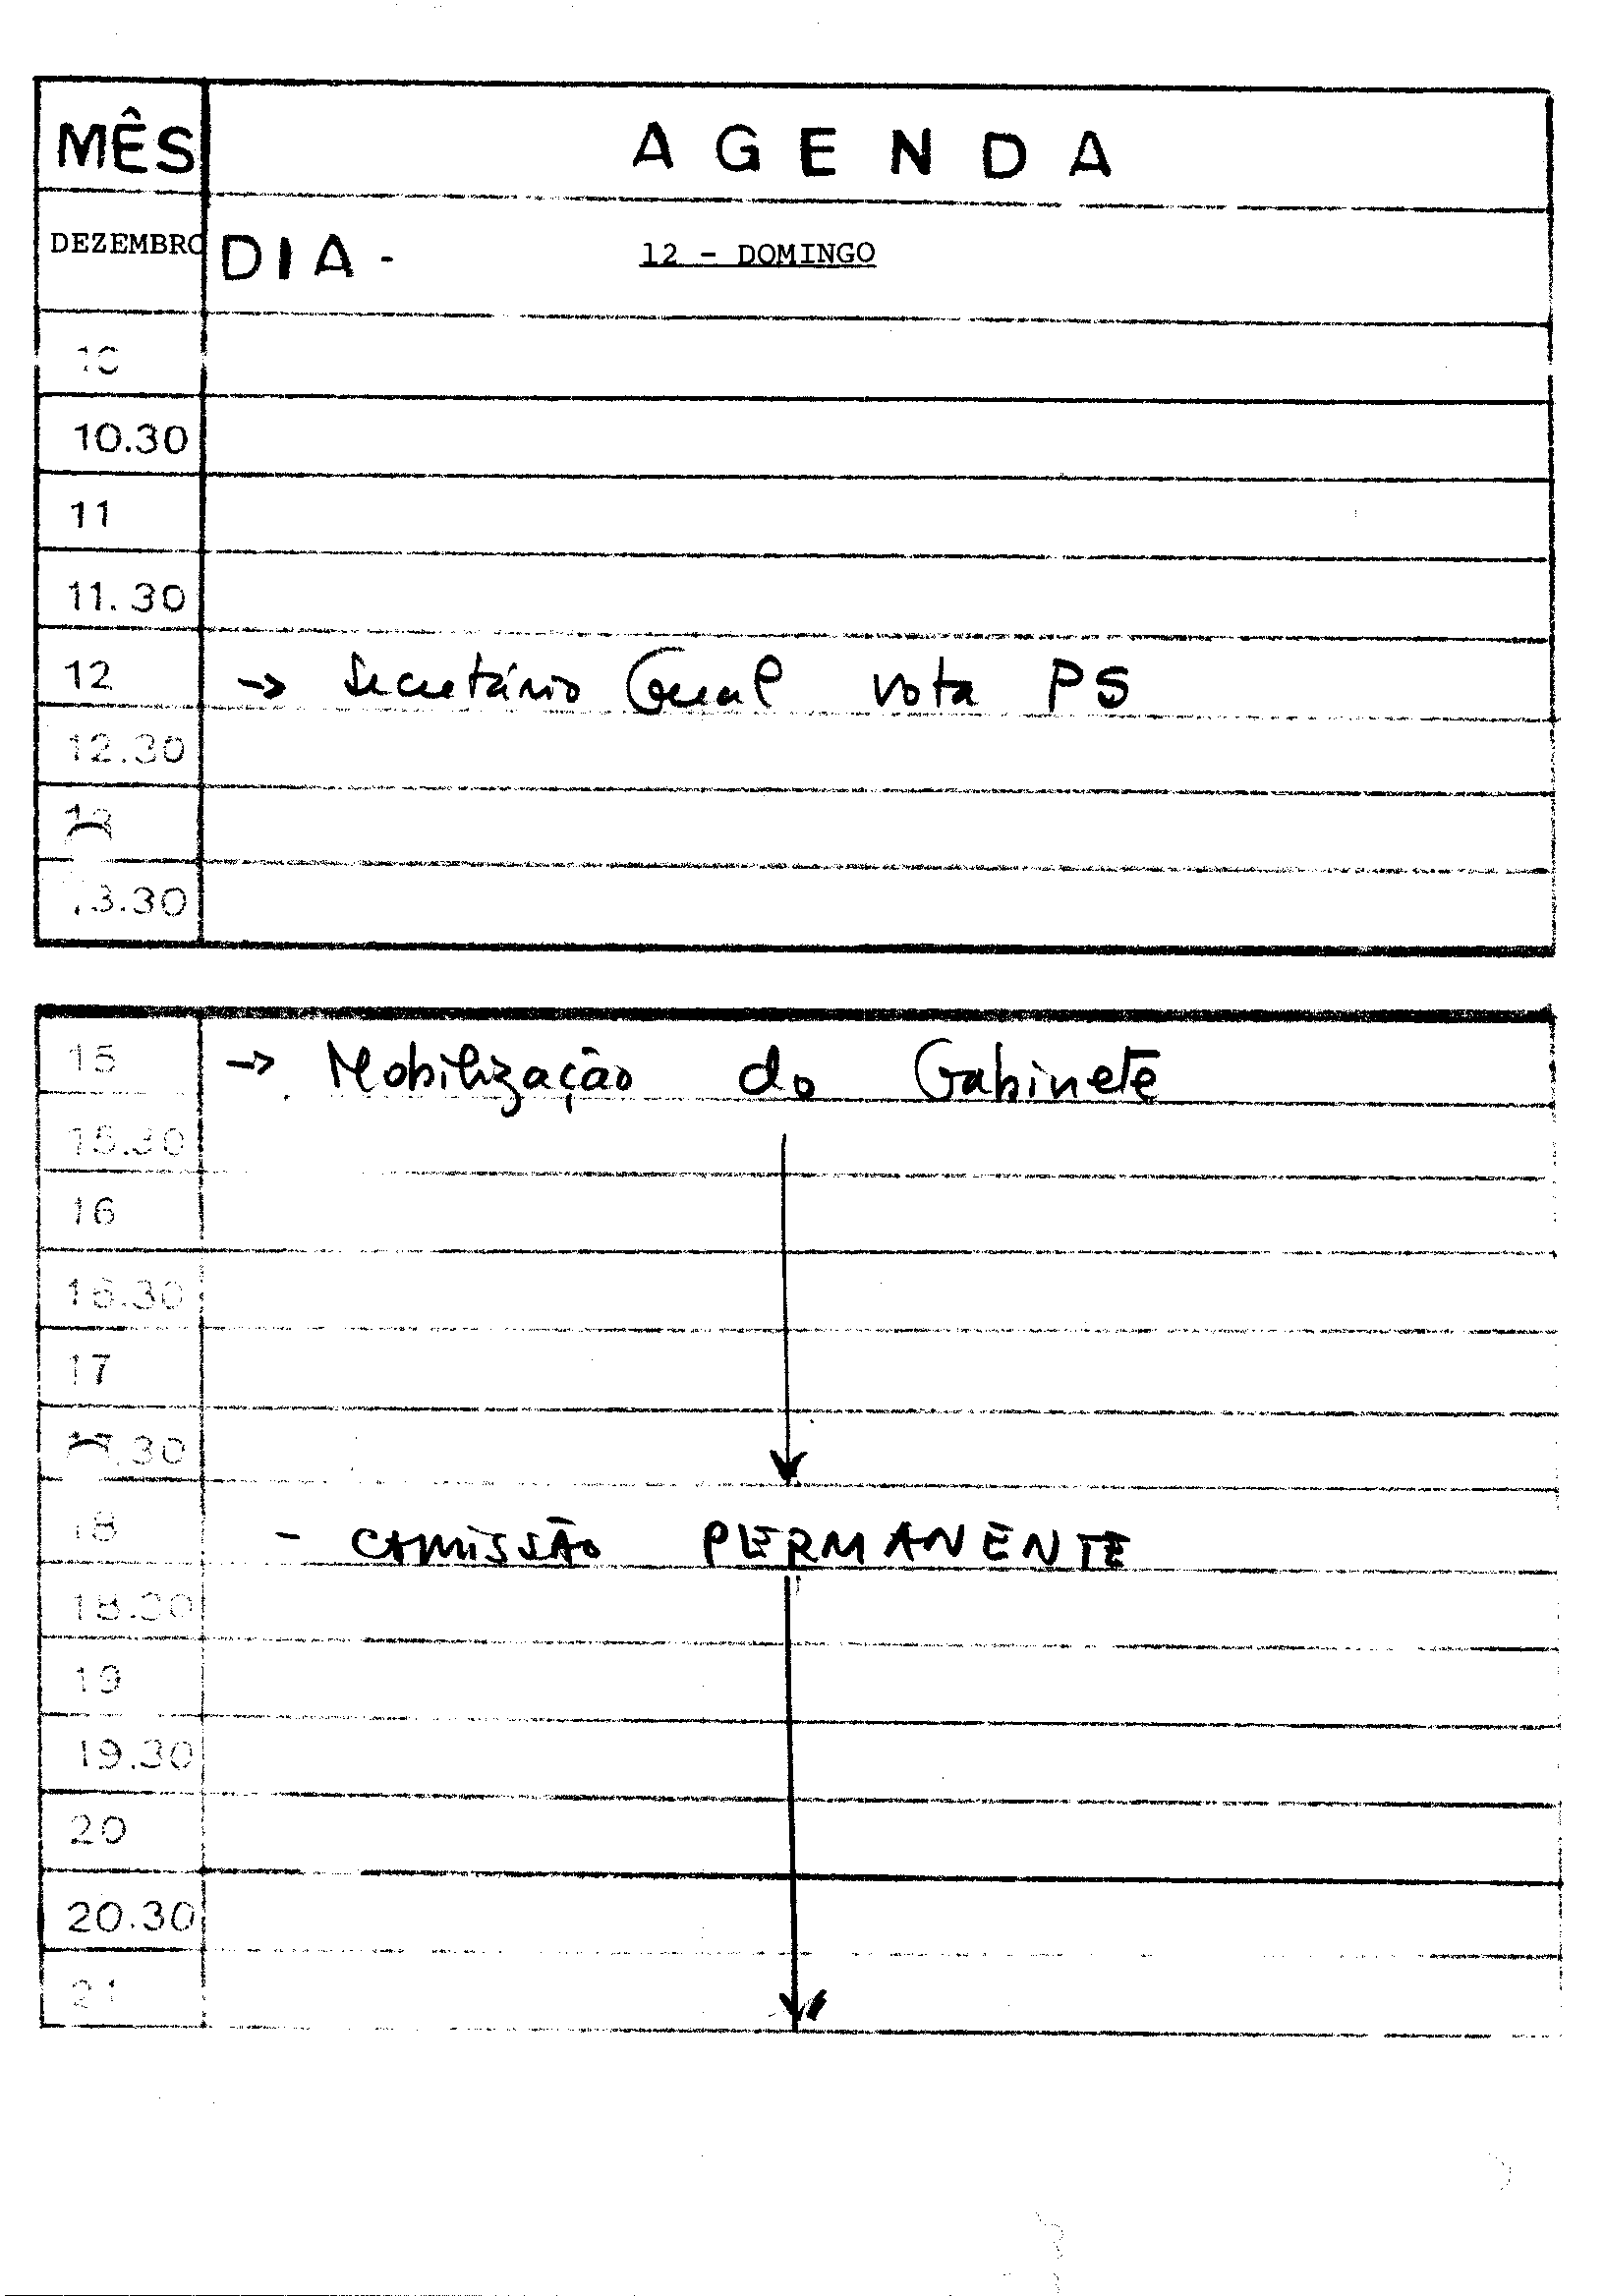 MÊS AGENDA
DEZEMBRO DIA - 12 - DOMINGO
10
10.30
11
11.30
12 → Secretário Geral vota PS
12.30
13
13.30
15 → Mobilização do Gabinete
15.30
16
16.30
17
17.30
18 - COMISSÃO PERMANENTE
18.30
19
19.30
20
20.30
21